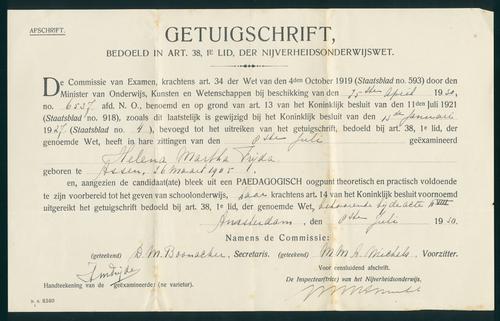 AFSCHRIFT.
GETUIGSCHRIFT,
BEDOELD IN ART. 38, 1E LID, DER NIJVERHEIDSONDERWIJSWET.
De Commissie van Examen, krachtens art. 34 der Wet van den 4den October 1919 (Staatsblad no. 593) door den
Minister van Onderwijs, Kunsten en Wetenschappen bij beschikking van den 25sten April 1930,
no. 6527 afd. N. O., benoemd en op grond van art. 13 van het Koninklijk besluit van 11 den Juli 1921
(Staatsblad no. 918), zooals dit laatstelijk is gewijzigd bij het Koninklijk besluit van 15de Januari
1927 (Staatsblad no. 4), bevoegd tot het uitreiken van het getuigschrift, bedoeld bij art. 38, 1e lid, der
genoemde Wet, heeft in hare zittingen van Juli geëxamineerd
Helena Martha Frida
geboren te Assen, 26 Maart 1905
en, aangezien de candidaat(ate) bleek uit een PAEDAGOGISCH oogpunt theoretisch en practisch voldoende
te zijn voorbereid tot het geven van schoolonderwijs, haar krachtens art. 14 van het Koninklijk besluit voornoemd
uitgereikt het getuigschrift bedoeld bij art. 38, 1e lid, der genoemde Wet, behoorende bij de acte N VIII
Amsterdam, den Juli 1930.
Namens de Commissie:
(geteekend) B. M. Secretaris. (geteekend) M. M. A. Voorzitter.
Voor eensluidend afschrift.
Handteekening van de geëxamineerde: (ne varietur). De Inspecteur(trice) van het Nijverheidsonderwijs,
N. O. 8580